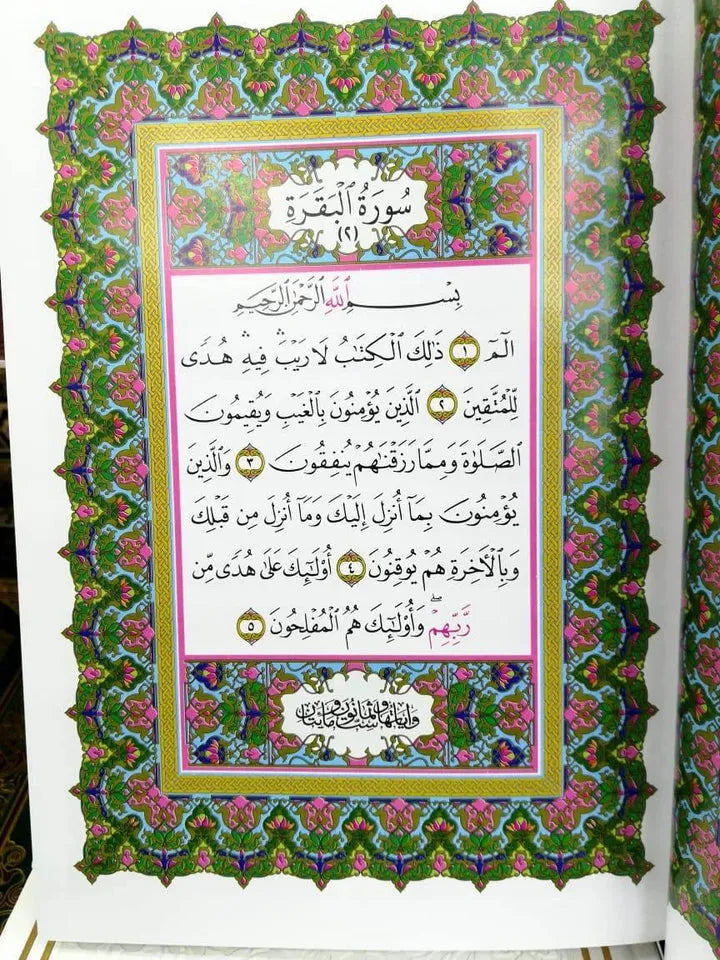 سُورَةُ الْبَقَرَةِ
(٢)
بِسْمِ اللَّهِ الرَّحْمَٰنِ الرَّحِيمِ
الٓمٓ ١ ذَٰلِكَ الْكِتَٰبُ لَا رَيْبَ ۛ فِيهِ ۛ هُدًى
لِّلْمُتَّقِينَ ٢ الَّذِينَ يُؤْمِنُونَ بِالْغَيْبِ وَيُقِيمُونَ
الصَّلَوٰةَ وَمِمَّا رَزَقْنَٰهُمْ يُنفِقُونَ ٣ وَالَّذِينَ
يُؤْمِنُونَ بِمَآ أُنزِلَ إِلَيْكَ وَمَآ أُنزِلَ مِن قَبْلِكَ
وَبِالْأَخِرَةِ هُمْ يُوقِنُونَ ٤ أُوْلَٰٓئِكَ عَلَىٰ هُدًى مِّن
رَّبِّهِمْ ۖ وَأُوْلَٰٓئِكَ هُمُ الْمُفْلِحُونَ ٥
وآياتها ست وثمانون ومائتان